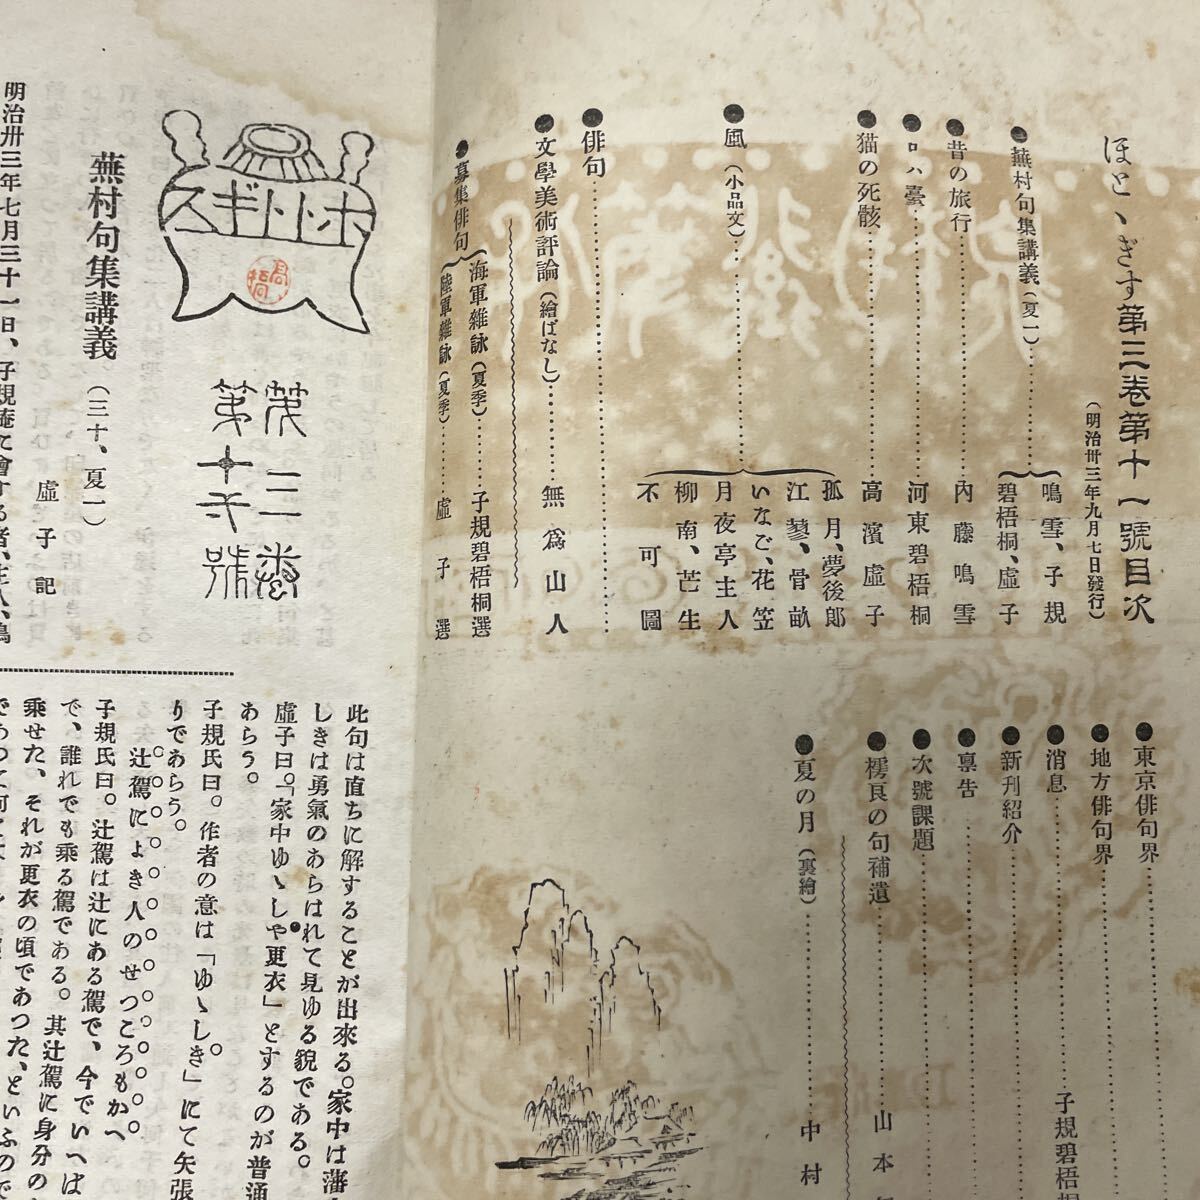 ほとゝぎす第三卷第十一號目次
(明治卅三年九月七日發行)
●蕪村句集講義(夏一)
鳴雪、子規
碧梧桐、虛子
●昔の旅行
內藤鳴雪
●ロハ臺
河東碧梧桐
●猫の死骸
高濱虛子
●風(小品文)
孤月、夢後郎
江蓼、骨畝
いなご、花笠
月夜亭主人
柳南、芒生
不可圖
●俳句
●文學美術評論(繪ばなし)
無爲山人
●募集俳句
海軍雜詠(夏季)
子規碧梧桐選
陸軍雜詠(夏季)
虛子選
●東京俳句界
●地方俳句界
●消息
子規碧梧
●新刊紹介
●禀告
●次號課題
●樗良の句補遺
山本
●夏の月(裏繪)
中村
ホトトギス
第三卷
第十一號
蕪村句集講義(三十、夏一)
虛子記
明治卅三年七月三十一日、子規庵に會する者、主人、鳴
此句は直ちに解することが出來る。家中は藩
しきは勇氣のあらはれて見ゆる貌である。
虛子曰。「家中ゆゝしや更衣」とするのが普通
あらう。
子規氏曰。作者の意は「ゆゝしき」にて矢張
りであらう。
辻駕によき人のせつころもかへ
子規氏曰。辻駕は辻にある駕で、今でいへば
で、誰れでも乘る駕である。其辻駕に身分の
乘せた、それが更衣の頃であつた、といふので